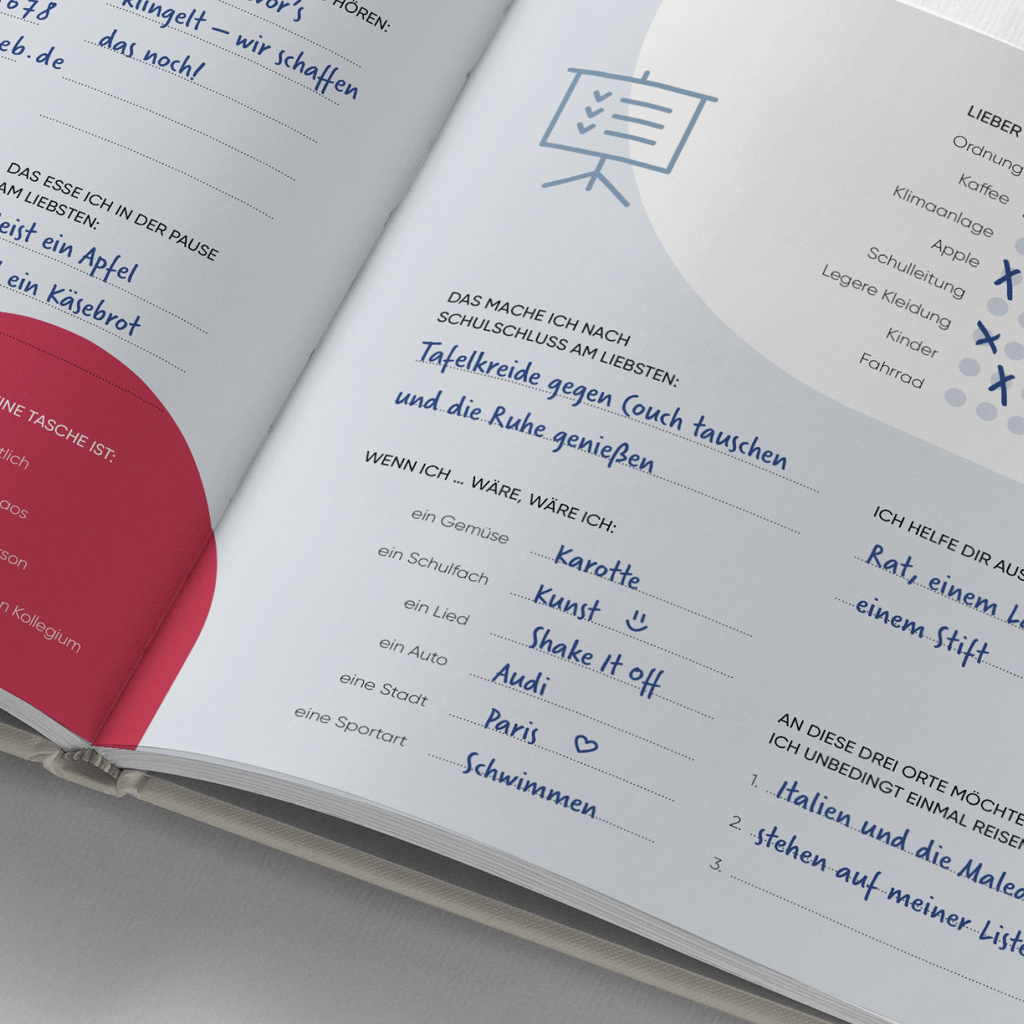 HÖREN:
klingelt – wir schaffen
eb.de
das noch!
DAS ESSE ICH IN DER PAUSE
AM LIEBSTEN:
ein Apfel
ein Käsebrot
TASCHE IST:
Kollegium
DAS MACHE ICH NACH
SCHULSCHLUSS AM LIEBSTEN:
Tafelkreide gegen Couch tauschen
und die Ruhe genießen
WENN ICH ... WÄRE, WÄRE ICH:
ein Gemüse Karotte
ein Schulfach Kunst
ein Lied Shake It Off
ein Auto Audi
eine Stadt Paris
eine Sportart Schwimmen
LIEBER
Ordnung
Kaffee
Klimaanlage
Apple
Schulleitung
Legere Kleidung
Kinder
Fahrrad
ICH HELFE DIR AUS
Rat, einem
einem Stift
AN DIESE DREI ORTE MÖCHTE
ICH UNBEDINGT EINMAL REISEN
1. Italien und die
2. stehen auf meiner Liste
3.